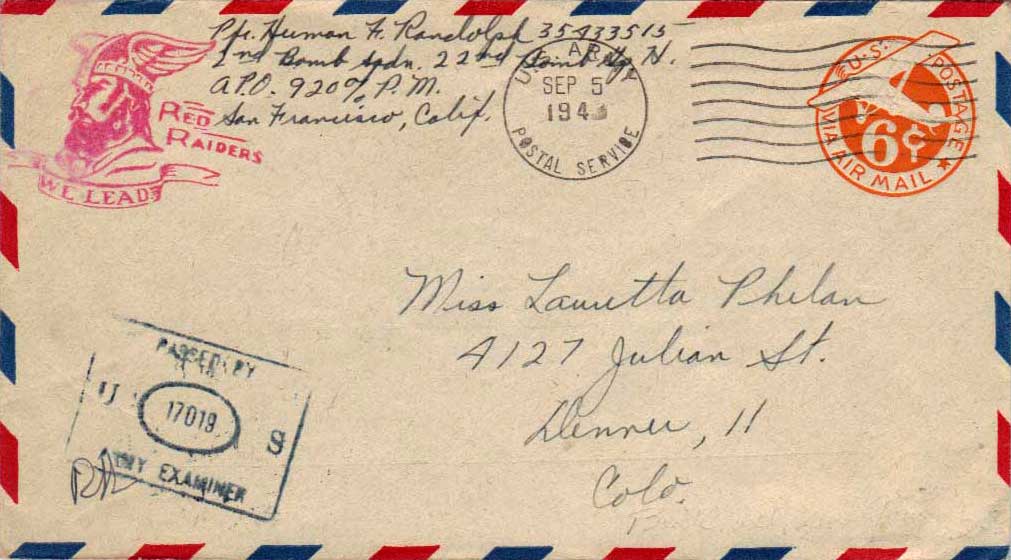 Pfc. Human F. Randolph 35433515
2nd Bomb Sqdn. 22nd Bomb Gp. H.
A.P.O. 920 % P.M.
San Francisco, Calif.
RED
RAIDERS
WE LEAD
U.S. ARMY
SEP 5
194
POSTAL SERVICE
U.S. POSTAGE
6¢
VIA AIR MAIL
Miss Lauretta Phelan
4127 Julian St.
Denver, 11
Colo.
PASSED BY
U S
17019
ARMY EXAMINER